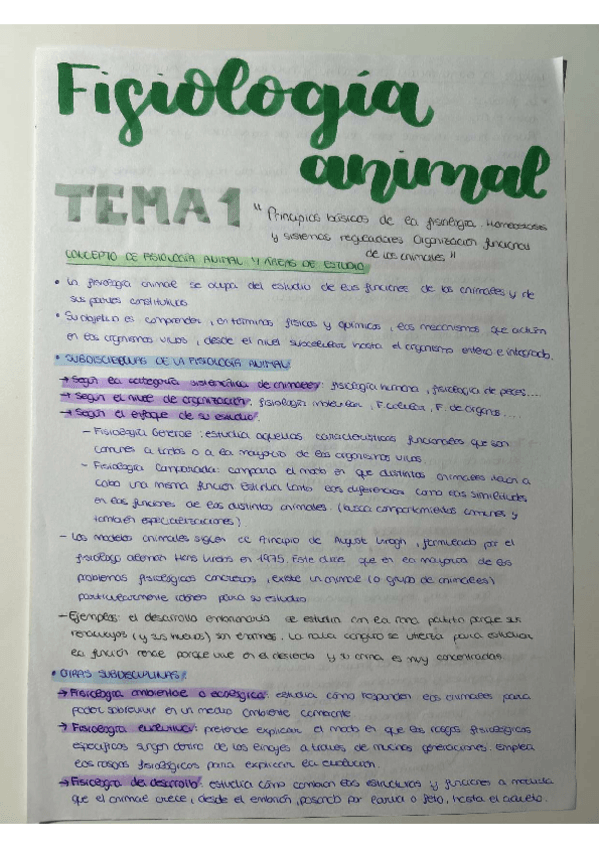 Fisiología
animal
TEMA 1 "Principios básicos de la fisiología. Homeostasis
y sistemas reguladores. Organización funcional
de los animales"
CONCEPTO DE FISIOLOGÍA ANIMAL Y ÁREAS DE ESTUDIO
• La fisiología animal se ocupa del estudio de las funciones de los animales y de
sus partes constitutivas.
• Su objetivo es comprender, en términos físicos y químicos, los mecanismos que actúan
en los organismos vivos, desde el nivel subcelular hasta el organismo entero e integrado.
• SUBDISCIPLINAS DE LA FISIOLOGÍA ANIMAL:
→ Según la categoría sistemática de animales: fisiología humana, fisiología de peces....
→ Según el nivel de organización: fisiología molecular, F. celular, F. de órganos....
→ Según el enfoque de su estudio:
- Fisiología General: estudia aquellas características funcionales que son
comunes a todos o a la mayoría de los organismos vivos.
- Fisiología Comparada: compara el modo en que distintos animales llevan a
cabo una misma función. Estudia tanto las diferencias como las similitudes
en las funciones de los distintos animales. (busca comportamientos comunes y
también especializaciones)
- Los modelos animales siguen el Principio de August Krogh, formulado por el
fisiólogo alemán Hans Krebs en 1975. Este dice que en la mayoría de los
problemas fisiológicos concretos, existe un animal (o grupo de animales)
particularmente idóneo para su estudio.
- Ejemplos: el desarrollo embrionario se estudia con la rana patito porque sus
renacuajos (y sus huevos) son enormes. La rata canguro se utiliza para estudiar
la función renal porque vive en el desierto y su orina es muy concentrada.
• OTRAS SUBDISCIPLINAS:
→ Fisiología ambiental o ecológica: estudia cómo responden los animales para
poder sobrevivir en un medio ambiente cambiante.
→ Fisiología evolutiva: pretende explicar el modo en que los rasgos fisiológicos
específicos surgen dentro de los linajes a través de muchas generaciones. Emplea
los rasgos fisiológicos para explicar la evolución.
→ Fisiología del desarrollo: estudia cómo cambian las estructuras y funciones a medida
que el animal crece, desde el embrión, pasando por larva o feto, hasta el adulto.